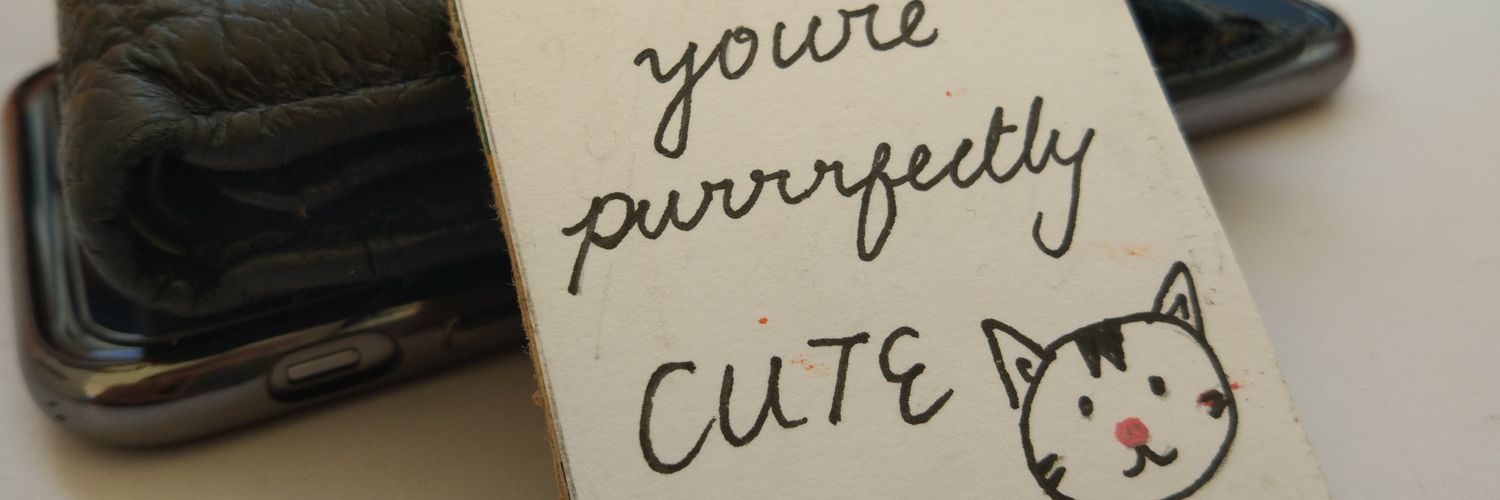 youre
purrrfectly
CUTE